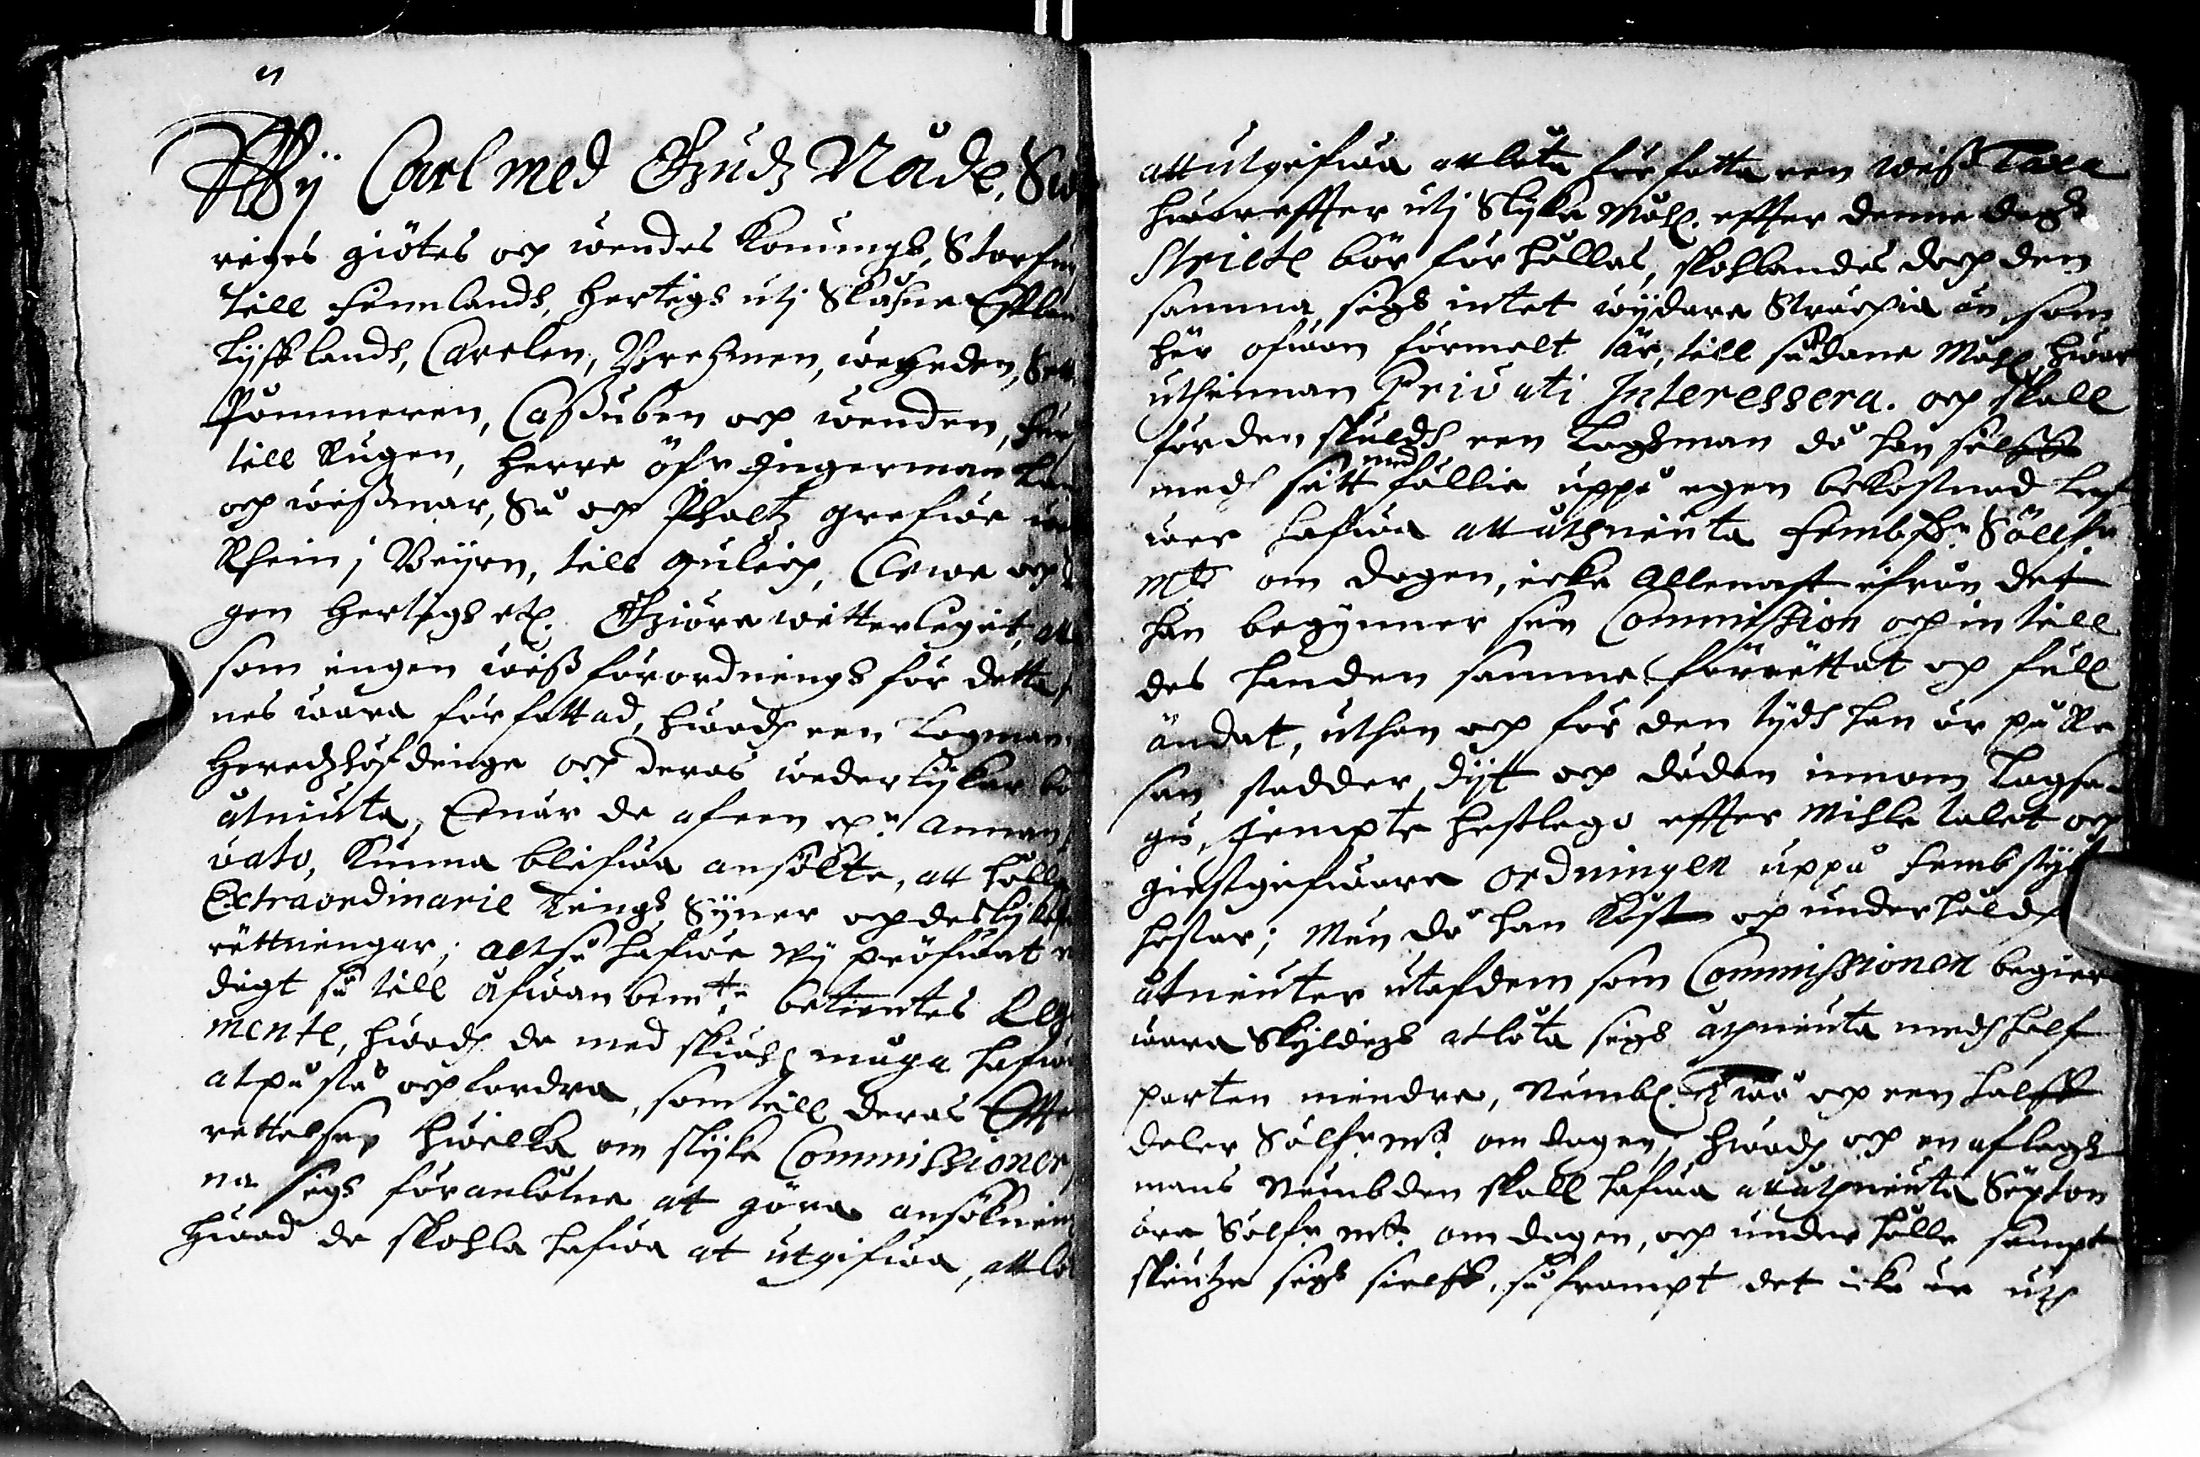 Wij Carl med Gudz Nåde, Sw
riges giötes och wendes Konungh, Storfur
till Finnlandh, Hertigh utj Skåhne Estlan
Lijfflandh, Carelen, Brehmen, wehrden, Stet
Pommeren, Caßuben och wenden, Furs
till Rugen, Herre öfr Ingerman lan
och wißmar, Så och Phaltz grefwe wed
Rhein i Beijrn, till Gulich, Clewe och
gen Hertigh etc. Giöre witterligit, att
som ingen wiß förordningh för detta
nes wara författad, hwadh een Lagman
Heredzhöfdinge och deras wederlijkar bö
åtniuta, Enär de af een och annan
vato, kunna blifwa ansökte, att hålla
Extraordinarie Tingh, Syner och deslijkest
rättningar; altså hafwe wij pröfwat n
digt så till åfwanbem:te betientes Reg
mente, hwadh de med skiähl måga hafwa
at på stå och fordra, som till deras Effter
rettelsse, hwilka om slijke Commissioner
na sigh föranlåtne at göra ansökning
hwad de skohla hafwa at utgifwa, att lå
att utgifwa att låta författa een wiß Taxa
hwareffter utj slijka måhl effter denne dagh
stricte bör förhållas, skohlandes doch den
samma sigh intet wijdare sträckia än som
här ofwan förmält är, till sådane måhl hwar
uthinnan Privati Interessera. och skall
fördenskuldh een Laghman då han sielff
medh sitt med föllie uppå egen bekostnad lef
wer hafwa att åthniuta Femb dr: Sölf:r
mt: om dagen, icke allenast ifrån det
han begynner sin Commission och in till
des handen samma förrättat och full
ändat, uthan och för den tijdh han är på Re
san stadder, dijt och dädan innom Laghsa-
gu, Jempte hestlego effter Mihle talet och
giestgifware Ordningen uppå Femb styck
hestar; Men då han kost och underhåldh
åtniuter utaf dem som Commissionen begiera
wara skyldigh at låta sigh åthniuta medh half
parten mindre, Nembl: Twå och een halff
daler Sölf:r mt: om dagen, hwadh och en af Lagh
mans Nembden skall hafwa att åthniuta Sexton
öre Sölf:r mt: om dagen, och underhålle sampt
skiutze sigh sielff, så frampt det icke är uth